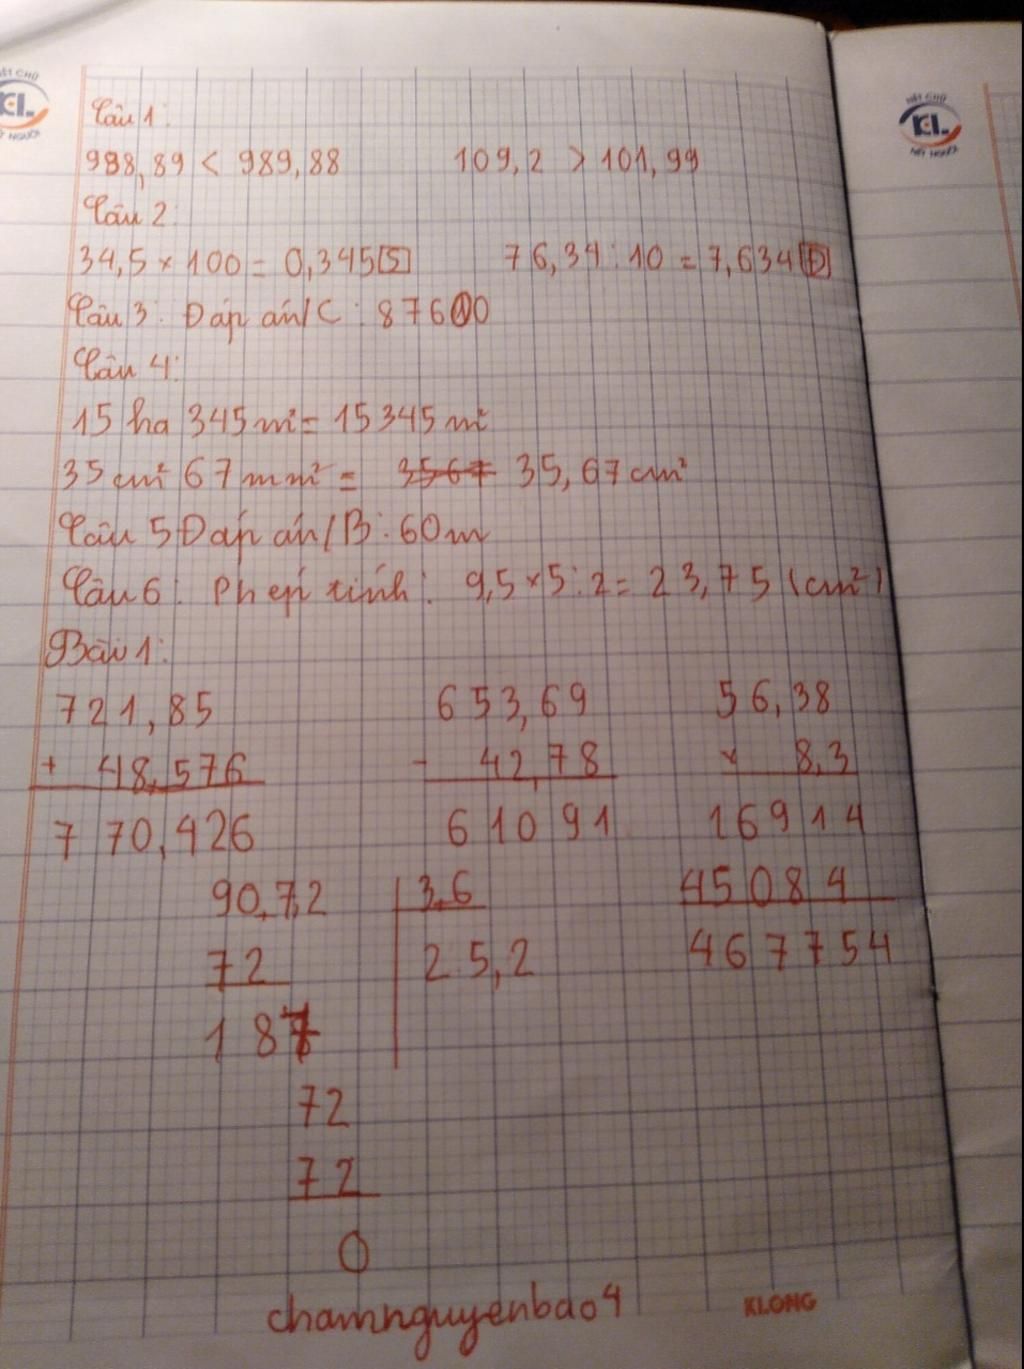 Câu 1:
998,89 < 989,88 109,2 > 101,99
Câu 2:
34,5 × 100 = 0,345 S 76,34 : 10 = 7,634 Đ
Câu 3: Đáp án/C: 87600
Câu 4:
15 ha 345 m² = 15345 m²
35 cm² 67 mm² = 3567 35,67 cm²
Câu 5 Đáp án/B: 60m
Câu 6: Phép tính: 9,5 × 5 : 2 = 23,75 (cm²)
Bài 1:
721,85 653,69 56,38
+ 48,576 - 42,78 × 8,3
770,426 61091 16914
90,7,2 3,6 45084
72 25,2 467754
187
72
72
0
chamnguyenbao4
KLONG
NÉT CHỮ
KL
NẾT NGƯỜI